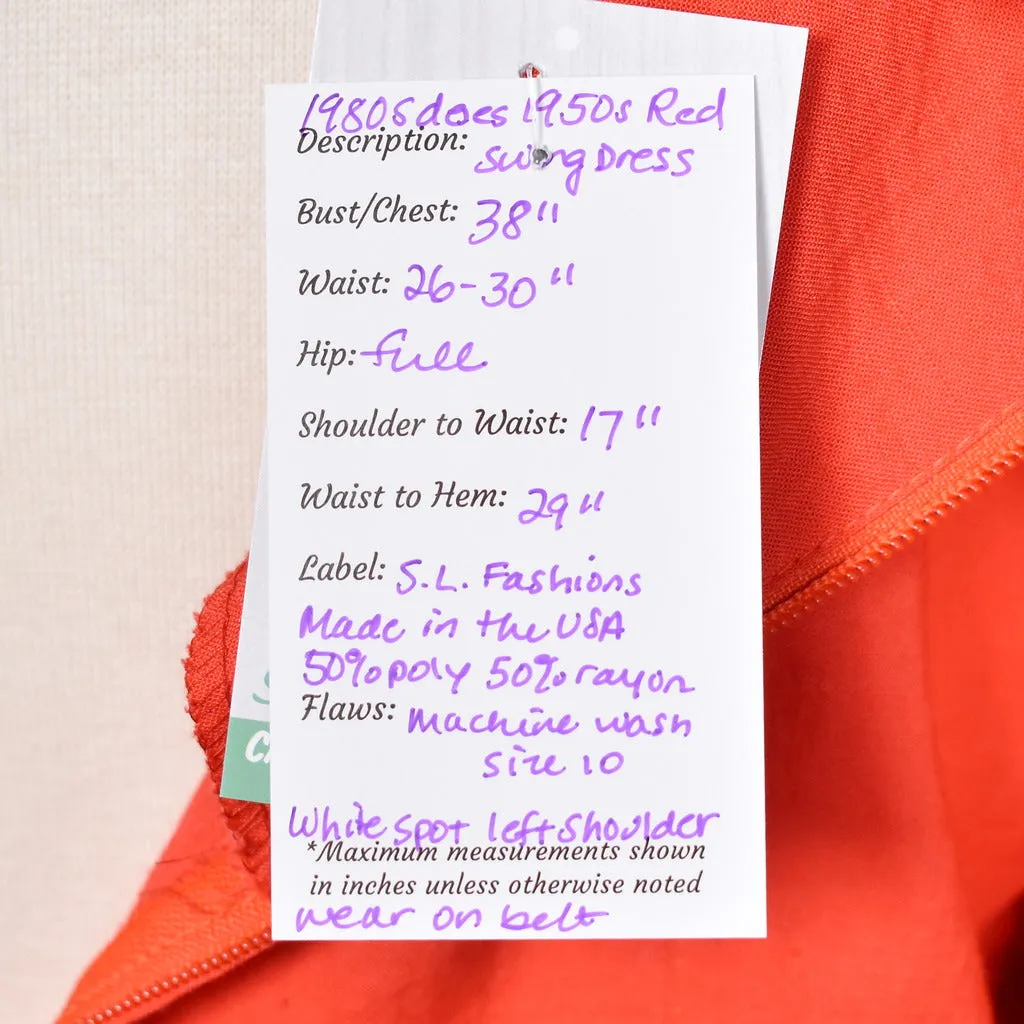 1980s does 1950s Red
Description:
Swing Dress
Bust/Chest: 38"
Waist: 26-30"
Hip: full
Shoulder to Waist: 17"
Waist to Hem: 29"
Label: S.L. Fashions
Made in the USA
50% poly 50% rayon
Flaws: Machine wash
size 10
White spot left shoulder
*Maximum measurements shown
in inches unless otherwise noted
wear on belt